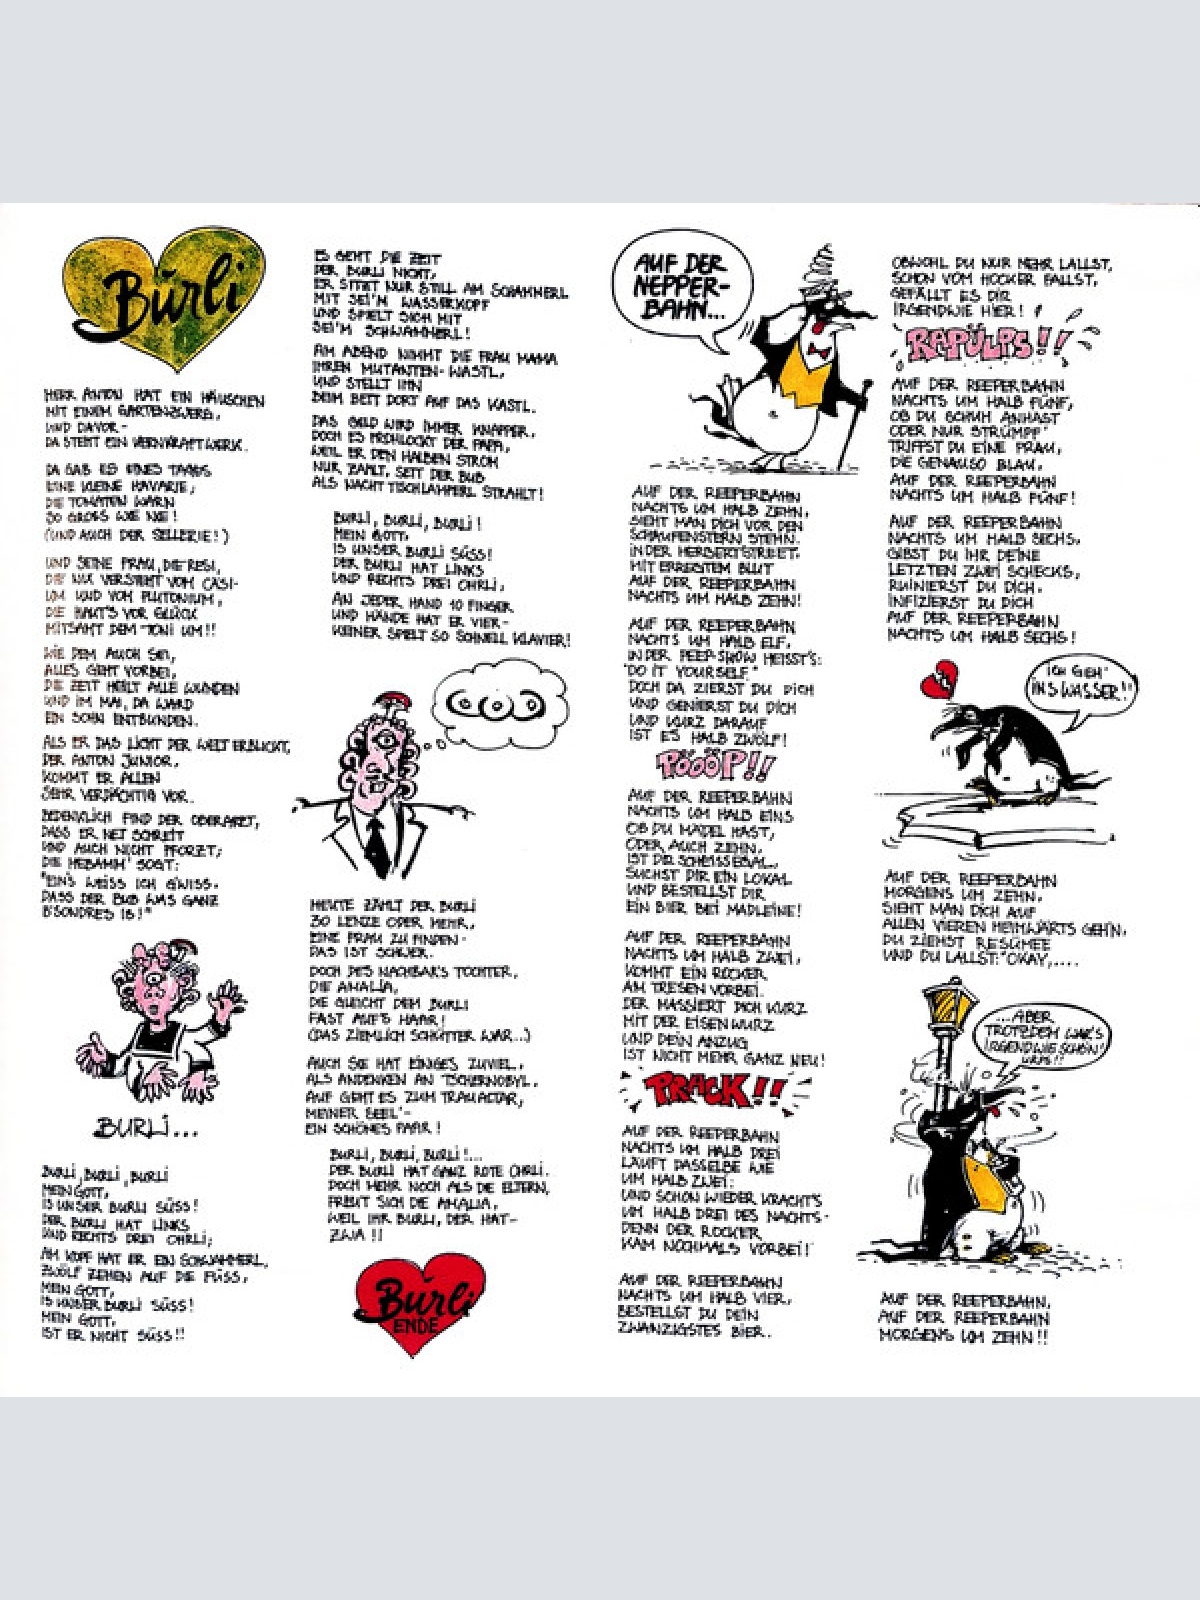 Burli
HERR ANTON HAT EIN HÄUSCHEN
MIT EINEM GARTENZWERG,
UND DAVOR -
DA STEHT EIN KERNKRAFTWERK.
DA GAB ES EINES TAGES
EINE KLEINE HAVARIE;
DIE TOMATEN WARN
SO GROSS WIE NIE!
(UND AUCH DER SELLERIE!)
UND SEINE FRAU, DIE RESI,
DIE NIX VERSTEHT VOM CÄSI-
UM UND VOM PLUTONIUM,
DIE HAUT'S VOR GLÜCK
MITSAMT DEM TONI UM!!
WIE DEM AUCH SEI,
ALLES GEHT VORBEI,
DIE ZEIT HEILT ALLE WUNDEN
UND IM MAI, DA WARD
EIN SOHN ENTBUNDEN.
ALS ER DAS LICHT DER WELT ERBLICKT,
DER ANTON JUNIOR,
KOMMT ER ALLEN
SEHR VERDÄCHTIG VOR.
BEDENKLICH FIND DER OBERARZT,
DASS ER NET SCHREIT
UND AUCH NICHT PFORZT;
DIE HEBAMM' SOGT:
"EINS WEISS ICH G'WISS.
DASS DER BUB WAS GANZ
B'SONDRES IS!"
BURLI...
BURLI, BURLI, BURLI
MEIN GOTT,
IS UNSER BURLI SÜSS!
DER BURLI HAT LINKS
UND RECHTS DREI OHRLI;
AM KOPF HAT ER EIN SCHWAMMERL,
ZWÖLF ZEHEN AUF DIE FÜSS,
MEIN GOTT,
IS UNSER BURLI SÜSS!
MEIN GOTT,
IST ER NICHT SÜSS!!
ES GEHT DIE ZEIT
DER BURLI NICHT,
ER SITZT NUR STILL AM SCHAMMERL
MIT SEI'N WASSERKOPF
UND SPIELT SICH MIT
SEI'M SCHWAMMERL!
AM ABEND NIMMT DIE FRAU MAMA
IHREN MUTANTEN-WASTL,
UND STELLT IHN
BEIM BETT DORT AUF DAS KASTL.
DAS GELD WIRD IMMER KNAPPER,
DOCH ES FROHLOCKT DER PAPA,
WEIL ER DEN HALBEN STROM
NUR ZAHLT, SEIT DER BUB
ALS NACHTTISCHLAMPERL STRAHLT!
BURLI, BURLI, BURLI!
MEIN GOTT,
IS UNSER BURLI SÜSS!
DER BURLI HAT LINKS
UND RECHTS DREI OHRLI,
AN JEDER HAND 10 FINGER
UND HÄNDE HAT ER VIER-
KEINER SPIELT SO SCHNELL KLAVIER!
HEUTE ZÄHLT DER BURLI
30 LENZE ODER MEHR,
EINE FRAU ZU FINDEN-
DAS IST SCHWER.
DOCH DES NACHBAR'S TOCHTER,
DIE AMALIA,
DIE GLEICHT DEM BURLI
FAST AUF'S HAAR!
(DAS ZIEMLICH SCHÜTTER WAR...)
AUCH SIE HAT EINIGES ZUVIEL,
ALS ANDENKEN AN TSCHERNOBYL.
AUF GEHT ES ZUM TRAUALTAR,
MEINER SEEL'-
EIN SCHÖNES PAAR!
BURLI, BURLI, BURLI!...
DER BURLI HAT GANZ ROTE OHRLI.
DOCH MEHR NOCH ALS DIE ELTERN,
FREUT SICH DIE AMALIA,
WEIL IHR BURLI, DER HAT-
ZWA!!
Burli
ENDE
AUF DER
NEPPER-
BAHN...
AUF DER REEPERBAHN
NACHTS UM HALB ZEHN,
SIEHT MAN DICH VOR DEN
SCHAUFENSTERN STEHN.
IN DER HERBERTSTREET,
MIT ERREGTEM BLUT
AUF DER REEPERBAHN
NACHTS UM HALB ZEHN!
AUF DER REEPERBAHN
NACHTS UM HALB ELF,
IN DER PEEP-SHOW HEISST'S:
"DO IT YOURSELF."
DOCH DA ZIERST DU DICH
UND GENIERST DU DICH
UND KURZ DARAUF
IST ES HALB ZWÖLF!
PÖÖÖP!!
AUF DER REEPERBAHN
NACHTS UM HALB EINS
OB DU MÄDEL HAST,
ODER AUCH ZEHN,
IST DIR SCHEISSEGAL,
SUCHST DIR EIN LOKAL
UND BESTELLST DIR
EIN BIER BEI MADLEINE!
AUF DER REEPERBAHN
NACHTS UM HALB ZWEI,
KOMMT EIN ROCKER
AM TRESEN VORBEI.
DER MASSIERT DICH KURZ
MIT DER EISENWURZ
UND DEIN ANZUG
IST NICHT MEHR GANZ NEU!
PRACK!!
AUF DER REEPERBAHN
NACHTS UM HALB DREI
LÄUFT DASSELBE WIE
UM HALB ZWEI:
UND SCHON WIEDER KRACHT'S
UM HALB DREI DES NACHTS-
DENN DER ROCKER
KAM NOCHMALS VORBEI!
AUF DER REEPERBAHN
NACHTS UM HALB VIER,
BESTELLST DU DEIN
ZWANZIGSTES BIER.
OBWOHL DU NUR MEHR LALLST,
SCHON VOM HOCKER FALLST,
GEFÄLLT ES DIR
IRGENDWIE HIER!
RAPÜLPS!!
AUF DER REEPERBAHN
NACHTS UM HALB FÜNF,
OB DU SCHUH ANHAST
ODER NUR STRÜMPF'
TRIFFST DU EINE FRAU,
DIE GENAUSO BLAU,
AUF DER REEPERBAHN
NACHTS UM HALB FÜNF!
AUF DER REEPERBAHN
NACHTS UM HALB SECHS,
GIBST DU IHR DEINE
LETZTEN ZWEI SCHECKS,
RUINIERST DU DICH,
INFIZIERST DU DICH
AUF DER REEPERBAHN
NACHTS UM HALB SECHS!
ICH GEH'
INS WASSER!!
AUF DER REEPERBAHN
MORGENS UM ZEHN,
SIEHT MAN DICH AUF
ALLEN VIEREN HEIMWÄRTS GEH'N,
DU ZIEHST RESÜMEE
UND DU LALLST: "OKAY,....
...ABER
TROTZDEM WAR'S
IRGENDWIE SCHÖN!
AUF DER REEPERBAHN,
AUF DER REEPERBAHN
MORGENS UM ZEHN!!